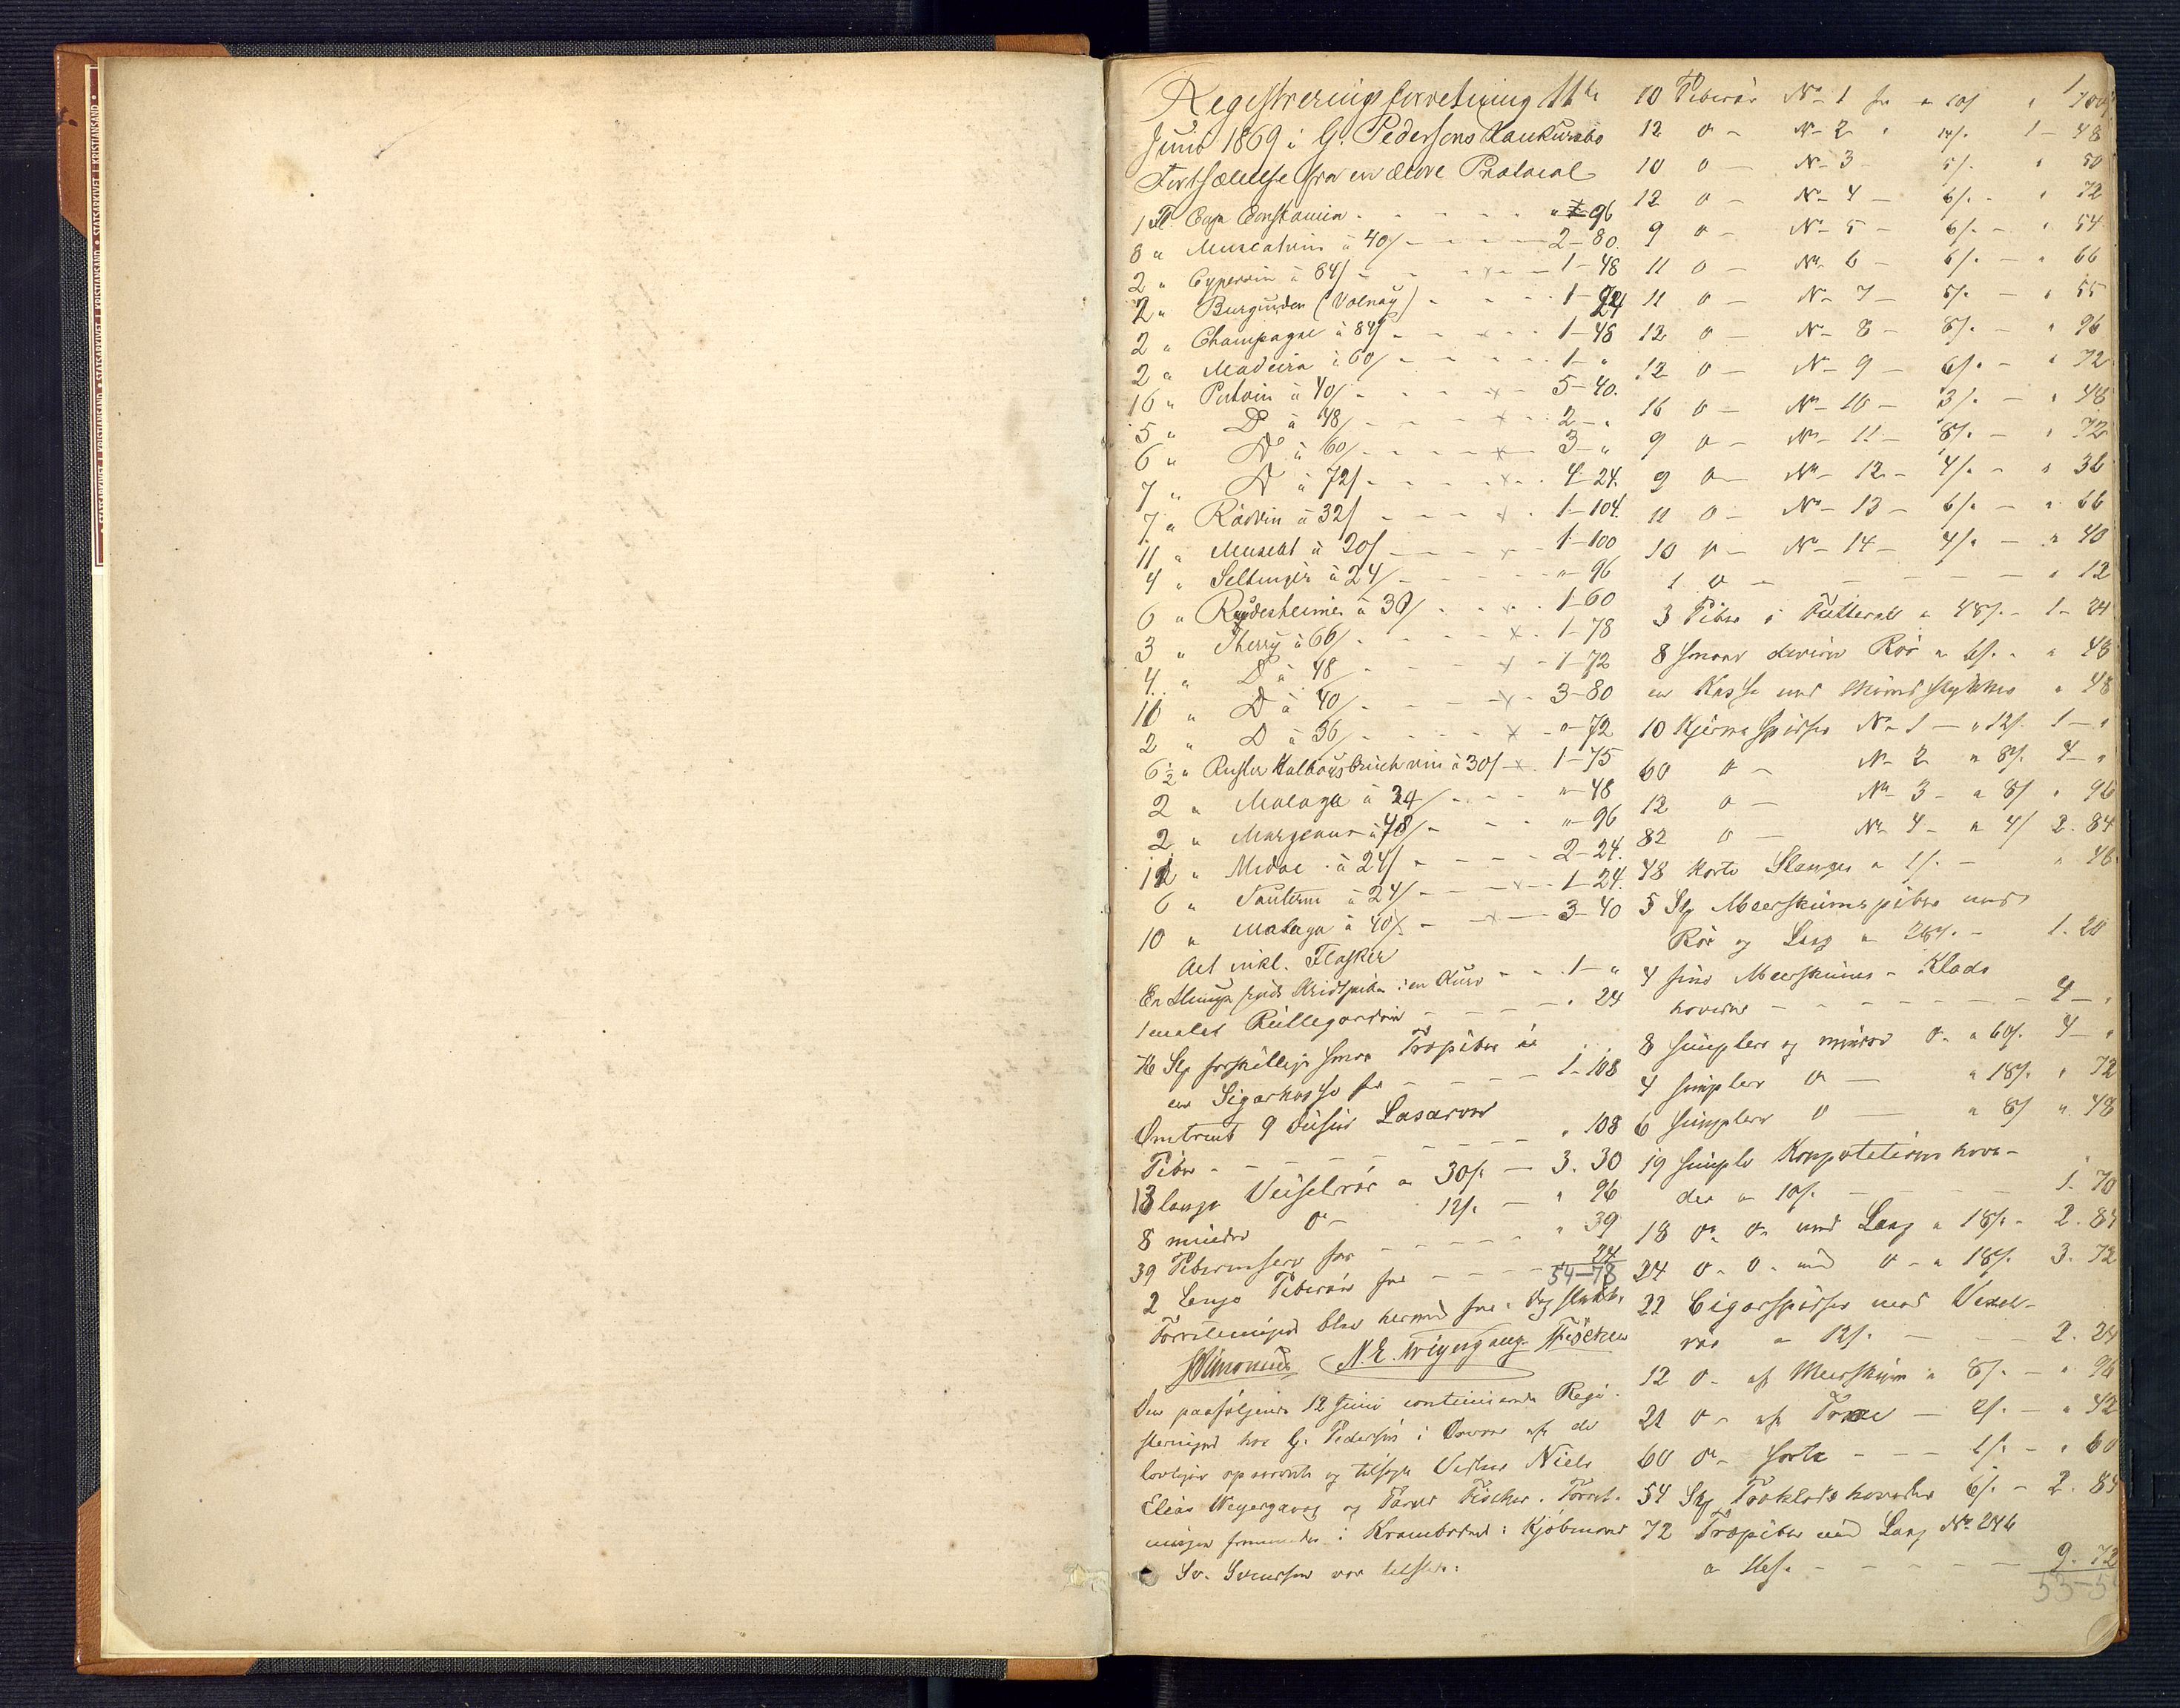 STATSARKIVET I KRISTIANSAND • STATSARKIVET I KRISTIANSAND • STATSARKIVET I KRISTIANSAND •
Registreringsforretning 11te
Juni 1869 i G. Pedersens Konkursbo
Fortsættelse fra en ældre Protocol
1 Fl. Constantia - - - " 96
8 " Muscatvin à 40/ - - - 2-80.
2 " Cypervin à 84/ - - x - 1-48
2 " Burgunder (Volnay) - - - 1-24
2 " Champagne à 84/ - - - 1-48
2 " Madeira à 60/ - - - 1- "
16 " Portvin à 40/ - - x - 5-40.
5 " Do à 48/ - - x - 2- "
6 " Do à 60/ - - x - 3 "
7 " Do à 72/ - - x - 4-24.
7 " Rødvin à 32/ - - x - 1-104.
11 " Muscat à 20/ - - x - 1-100
4 " Seltinger à 24/ - - - "-96
6 " Rüdesheimer à 30/ - - x - 1-60
3 " Sherry à 66/ - - x - 1-78
4 " Do à 48/ - - x - 1-72
11 " Do à 40/ - - x - 3-80
2 " Do à 36/ - - x - "-72
6½ " vin à 30/ - x - 1-75
2 " Malaga à 24/ - - - "-48
2 " Margeaux à 48/ - - - "-96
12 " Medoc à 24/ - - - 2-24.
6 " Sauterne à 24/ - - x - 1-24.
10 " Malaga à 40/ - - x - 3-40
Alt inkl. Flasker
En Slump Kridtpiber i en Kurv - - 1- "
1 malet Rullegardin - - - " 24
16 Stp forskjellige smaa Træpiber i
en Sigarkasse for - - - 1-108
Omtrent 9 Dusin Lasaron
Piber - - - - " 108
13 lange Veiselrør a 30/ - 3. 30
8 mindre do - 12/ - " 96
39 Piberensere for - - - " 39
2 lange Piberør for - - - 24
54-78
Forretningen blev hermed for i Dag sluttet.
N. E. Weyergang. Fischer
Den paafølgende 12 Juni continuerede Regi-
steringen hos G. Pedersen i Overvær af de
lovligen opnævnte og tilsagte Vidner Niels
Elias Weyergang og Fischer. Forret-
ningen fremmedes i Kramboden: Kjøbmand
Sv. Svendsen var tilstede:
10 Piberør No 1 for a 10/ " 100
12 o - No 2 " 14/. 1-48
10 o - No 3 5/. " 50
12 o - No 4 - 6/. - " 72
9 o - No 5 - 6/. - " 54
11 o - No 6 - 6/. - " 66
11 o - No 7 - 5/. - " 55
12 o - No 8 - 8/. - " 96
12 o - No 9 - 6/. - " 72
16 o - No 10 - 3/. - " 48
9 o - No 11 - 8/. - " 72
9 o - No 12 - 4/. - " 36
11 o - No 13 - 6/. - " 66
10 o - No 14 - 4/. - " 40
1 o - - - - " 12
3 Piber i Futteral a 48/. - 1-24
8 smaa Rør a 6/. - " 48
en Kasse med Skindstykker " 48
10 Kjerne Spidser No 1 - a 12/. 1- "
60 o - No 2 a 8/. 4- "
12 o - No 3 - a 8/ " 96
82 o - No 4 - a 4/ 2. 84
48 korte Slanger a 1/. - " 48
5 Stp Meerskumspiber med
Rør og Laag a 28/. - 1. 20
4 fine Meerskums-Klods
hoveder - - - - 4- "
8 simplere og mindre o. a 60/. 4- "
4 simplere o - a 18/. " 72
6 simplere o - a 8/ " 48
19 simple Kompositions hove-
der a 10/. - - - 1. 70
18 o. o. med Laag a 18/. - 2. 84
24 o. o. med o - a 18/. 3. 72
22 Cigarspidser med Veisel-
rør a 12/. - - - 2. 24
12 o - af Meerskum a 8/. - " 96
21 o - af Træ - 2/. - " 42
60 o - sorte - - 1/. - " 60
54 Stp Træklodshoveder 6/. - 2. 84
72 Træpiber med Laag No 246
a 16/. - - - - 9. 72
53-5